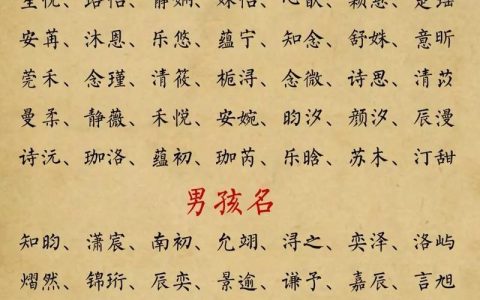 安苒、沐恩、乐悠、蕴宁、知念、舒姝、意昕
莞禾、念瑾、清筱、栀浔、念微、诗思、清苡
曼柔、静薇、禾悦、安婉、昀汐、颜汐、辰漫
诗沅、珈洛、蕴初、珈芮、乐晗、苏木、汀甜
男孩名
知昀、潇宸、南初、允翊、浔之、奕泽、洛屿
熠然、锦珩、辰奕、景逾、谦予、嘉辰、言旭